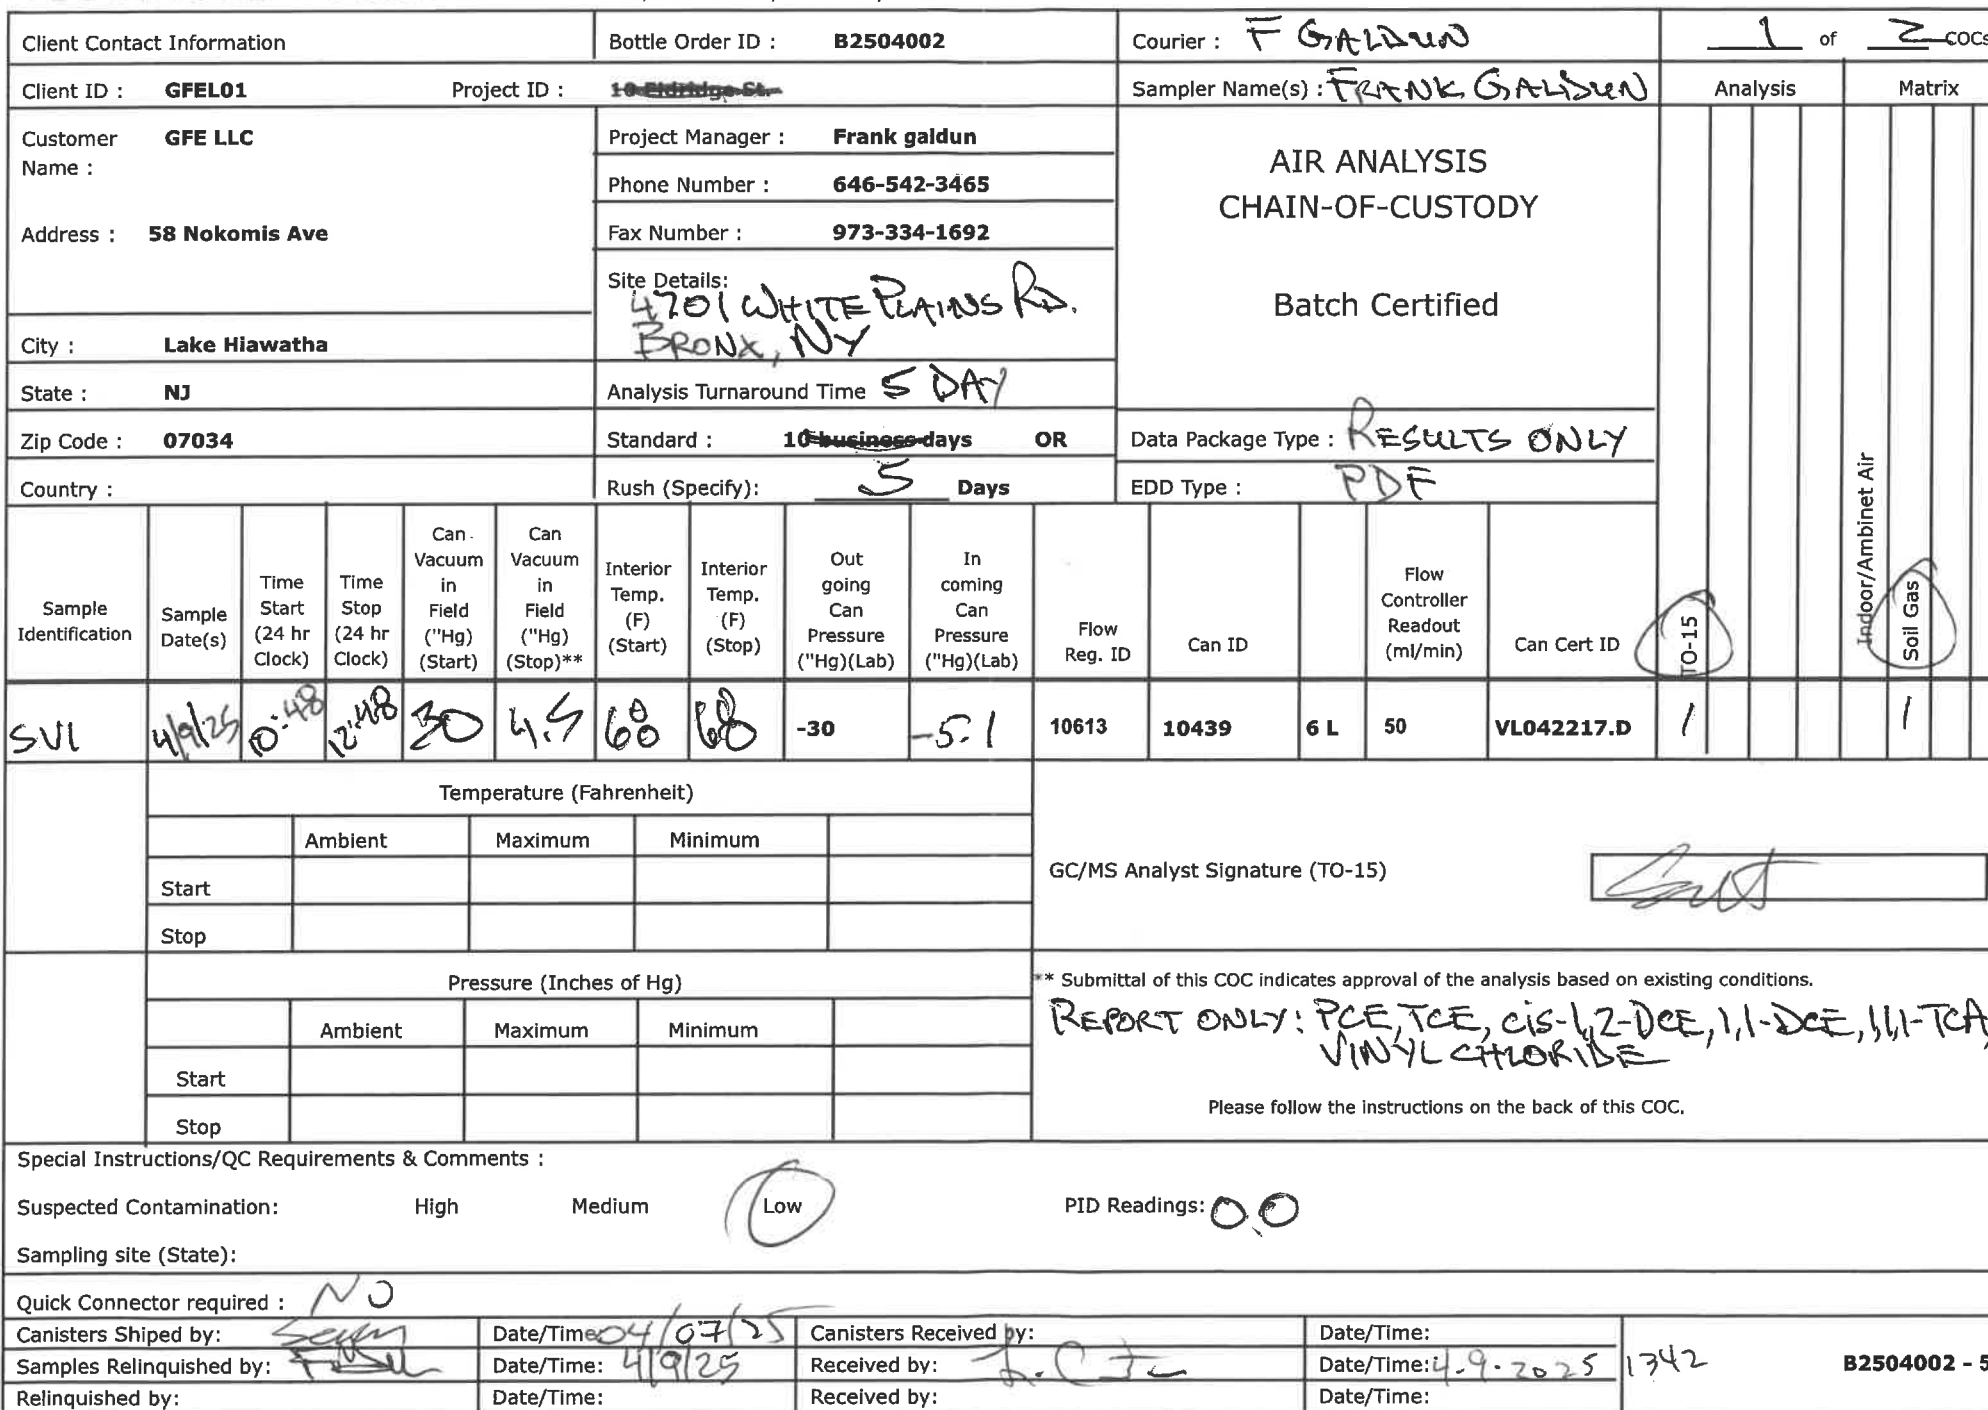 Client Contact Information Bottle Order ID : B2504002 Courier : F GALDUN 1 of 2 COCs
Client ID : GFEL01 Project ID : 10 Eldridge St. Sampler Name(s) : FRANK GALDUN Analysis Matrix
Customer Name : GFE LLC
Project Manager : Frank galdun
AIR ANALYSIS
CHAIN-OF-CUSTODY
Batch Certified
Phone Number : 646-542-3465
Address : 58 Nokomis Ave
Fax Number : 973-334-1692
Site Details:
4701 WHITE PLAINS RD.
BRONX, NY
City : Lake Hiawatha
State : NJ
Analysis Turnaround Time 5 DAY
Zip Code : 07034
Standard : 10 business days OR
Data Package Type : RESULTS ONLY
Country :
Rush (Specify): 5 Days
EDD Type : PDF
Sample Identification
Sample Date(s)
Time Start (24 hr Clock)
Time Stop (24 hr Clock)
Can Vacuum in Field ("Hg) (Start)
Can Vacuum in Field ("Hg) (Stop)**
Interior Temp. (F) (Start)
Interior Temp. (F) (Stop)
Out going Can Pressure ("Hg)(Lab)
In coming Can Pressure ("Hg)(Lab)
Flow Reg. ID
Can ID
Flow Controller Readout (ml/min)
Can Cert ID
TO-15
Indoor/Ambinet Air
Soil Gas
SV1 4/9/25 10:48 12:48 30 4.5 68 68 -30 -5.1 10613 10439 6 L 50 VL042217.D 1 1
Temperature (Fahrenheit)
Ambient Maximum Minimum
Start
Stop
GC/MS Analyst Signature (TO-15)
Pressure (Inches of Hg)
Ambient Maximum Minimum
Start
Stop
** Submittal of this COC indicates approval of the analysis based on existing conditions.
REPORT ONLY: PCE, TCE, cis-1,2-DCE, 1,1-DCE, 1,1,1-TCA,
VINYL CHLORIDE
Please follow the instructions on the back of this COC.
Special Instructions/QC Requirements & Comments :
Suspected Contamination: High Medium Low PID Readings: 0.0
Sampling site (State):
Quick Connector required : NO
Canisters Shiped by: Date/Time: 04/07/25 Canisters Received by: Date/Time:
Samples Relinquished by: Date/Time: 4/9/25 Received by: Date/Time: 4-9-2025 1342 B2504002 - 5
Relinquished by: Date/Time: Received by: Date/Time: